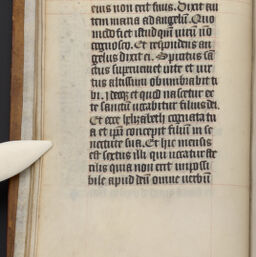 eius non erit finis. Dixit au
tem maria ad angelū. Quo
modo fiet istud qm̄ uirū nō
cognosco. Et respondens an
gelus dixit ei. Spiritus sā
ctus superueniet in te et uir
tus altissimi obumbrabit ti
bi. Ideoq; et quod nascetur ex
te sanctū uocabitur filius dei.
Et ecce helizabeth cognata tu
a et ip̄a concepit filiū in se
nectute sua. Et hic mensis
est sextus illi que uocatur ste
rilis quia non erit impossi
bile apud deū omne uerbū